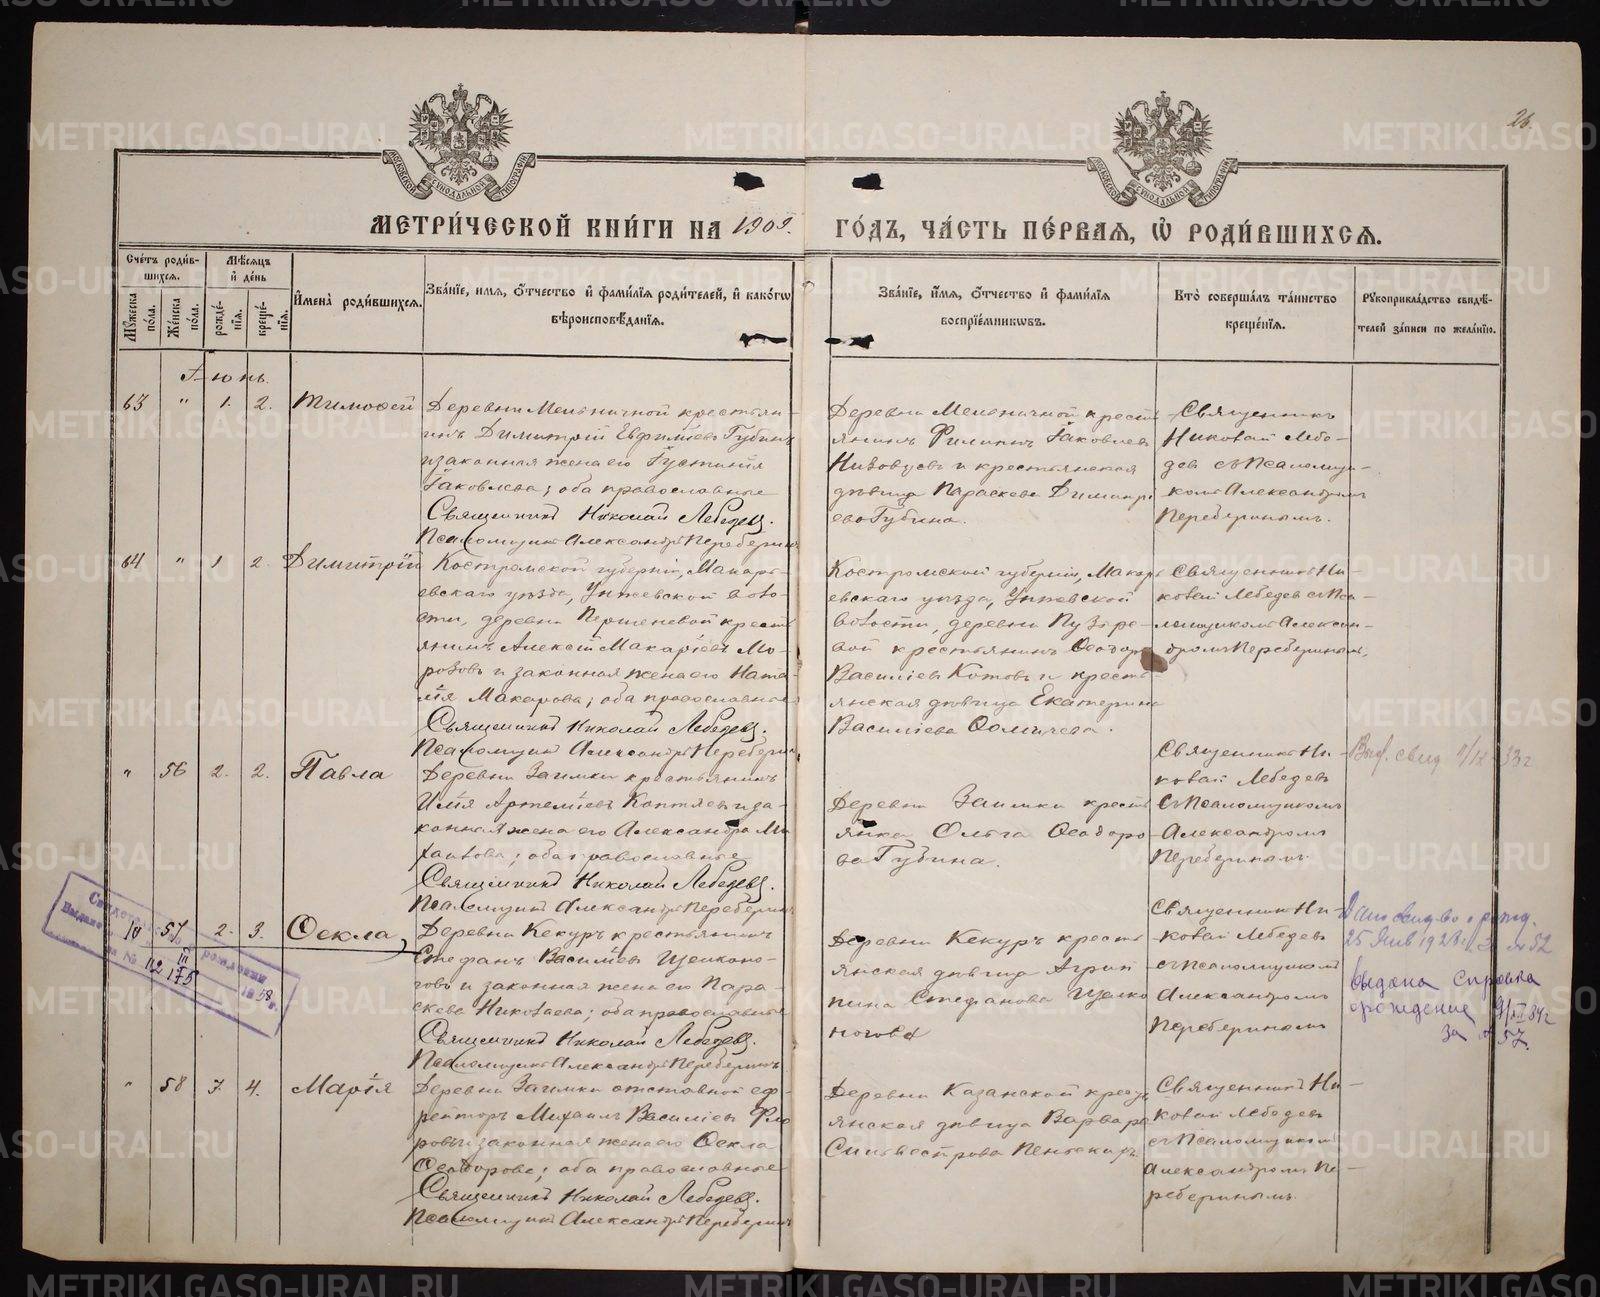 26.
МЕТРИ́ЧЕСКОЙ КНИ́ГИ НА 1909.
ГО́ДЪ, ЧА́СТЬ ПЕ́РВАЯ, Ѡ҆ РОДИ́ВШИХСѦ.
Сче́тъ роди́в-
шихсѧ.
Мѣ́сѧцъ
и҆ де́нь
Мꙋ́жеска по́ла.
Же́нска по́ла.
рожде́-
нїѧ.
креще́-
нїѧ.
И҆мена̀ роди́вшихсѧ.
Зва́нїе, и҆́мѧ, ѻ҆́тчество и҆ фами́лїѧ роди́телей, и҆ како́гѡ
вѣроисповѣ́данїѧ.
Зва́нїе, и҆́мѧ, ѻ҆́тчество и҆ фами́лїѧ
воспрїе́мникѡвъ.
Кто̀ соверша́лъ та́инство
креще́нїѧ.
Рꙋкоприкла́дство свидѣ́-
телей за́писи по жела́нїю.
Іюнь.
63 " 1. 2. Тимоѳей
Деревни Мельничной крестьян-
инъ Димитрій Евфиміевъ Губинъ
и законная жена его Іустинія
Іаковлева; оба православные
Священникъ Николай Лебедевъ.
Псаломщикъ Александръ Переберинъ
Деревни Мельничной крестья-
янинъ Филиппъ Іаковлевъ
и крестьянская
дѣвица Параскева Димитрі
ева Губина.
Священникъ
Николай Лебе-
девъ съ Псаломщи-
комъ Александромъ
Переберинымъ.
64 " 1 2. Димитрій
Костромской губерніи, Макарь-
евскаго уѣзда, Унжевской воло-
сти, деревни Першеневой крестья
янинъ Алексій Макаріевъ Мо-
розовъ и законная жена его Ната-
лія Макарова; оба православные
Священникъ Николай Лебедевъ.
Псаломщикъ Александръ Переберинъ
Костромской губерніи, Макарь
евскаго уѣзда, Унжевской
волости, деревни Пузыре-
вой крестьянинъ Ѳеодоръ
Василіевъ Котовъ и кресть-
янская дѣвица Екатерина
Василіева Ѳомичева.
Священникъ Ни-
колай Лебедевъ съ Пса-
ломщикомъ Алексан-
дромъ Переберинымъ.
" 56 2. 2. Павла
Деревни Заимки крестьянинъ
Илія Артеміевъ Коптяевъ и за-
конная жена его Александра Ми
хаилова; оба православные
Священникъ Николай Лебедевъ.
Псаломщикъ Александръ Переберинъ
Деревни Заимки кресть
янка Ольга Ѳеодоро-
ва Губина.
Священникъ Ни-
колай Лебедевъ
съ Псаломщикомъ
Александромъ
Переберинымъ
Выд. свид 53 г
" 57 2. 3. Ѳекла
Деревни Кекуръ крестьянинъ
Стефанъ Василіевъ Щелконо-
говъ и законная жена его Пара-
скева Николаева; оба православные
Священникъ Николай Лебедевъ.
Псаломщикъ Александръ Переберинъ
Деревни Кекуръ кресть
янская дѣвица Агрип
пина Стефанова Щелко
ногова
Священникъ Ни-
колай Лебедевъ
съ Псаломщикомъ
Александромъ
Переберинымъ
Дано свид-во о рожд.
25 Янв 1928 г. за № 52
Выдана справка
о рождение 34 г
за № 57.
Свидетельство о рождении
Выдано 10 III 1958 г.
за № 112175
" 58 7. 4. Марія
Деревни Заимки отставной еф-
рейторъ Михаилъ Василіевъ Фло
ровъ и законная жена его Ѳекла
Ѳеодорова; оба православные
Священникъ Николай Лебедевъ.
Псаломщикъ Александръ Переберинъ
Деревни Казанской кресть
янская дѣвица Варвара
Сильвестрова
Священникъ Ни-
колай Лебедевъ
съ Псаломщикомъ
Александромъ Пе-
реберинымъ.
METRIKI.GASO-URAL.RU